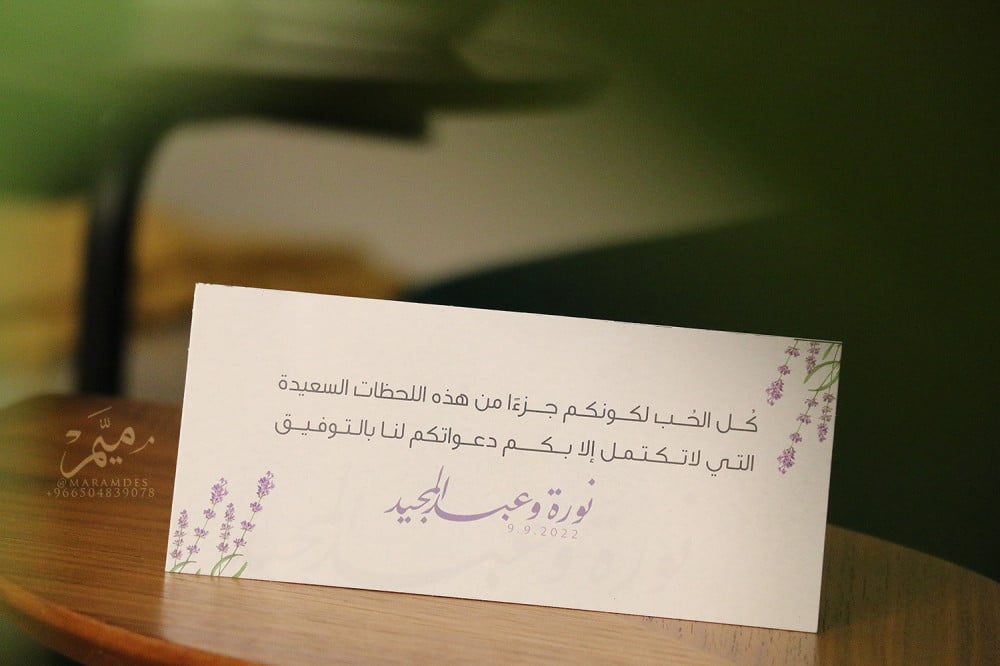 كُل الحُب لكونكم جزءًا من هذه اللحظات السعيدة
التي لاتكتمل إلا بكم دعواتكم لنا بالتوفيق
نورة وعبدالمجيد
9.9.2022
ميم
@MARAMDES
+966504839078